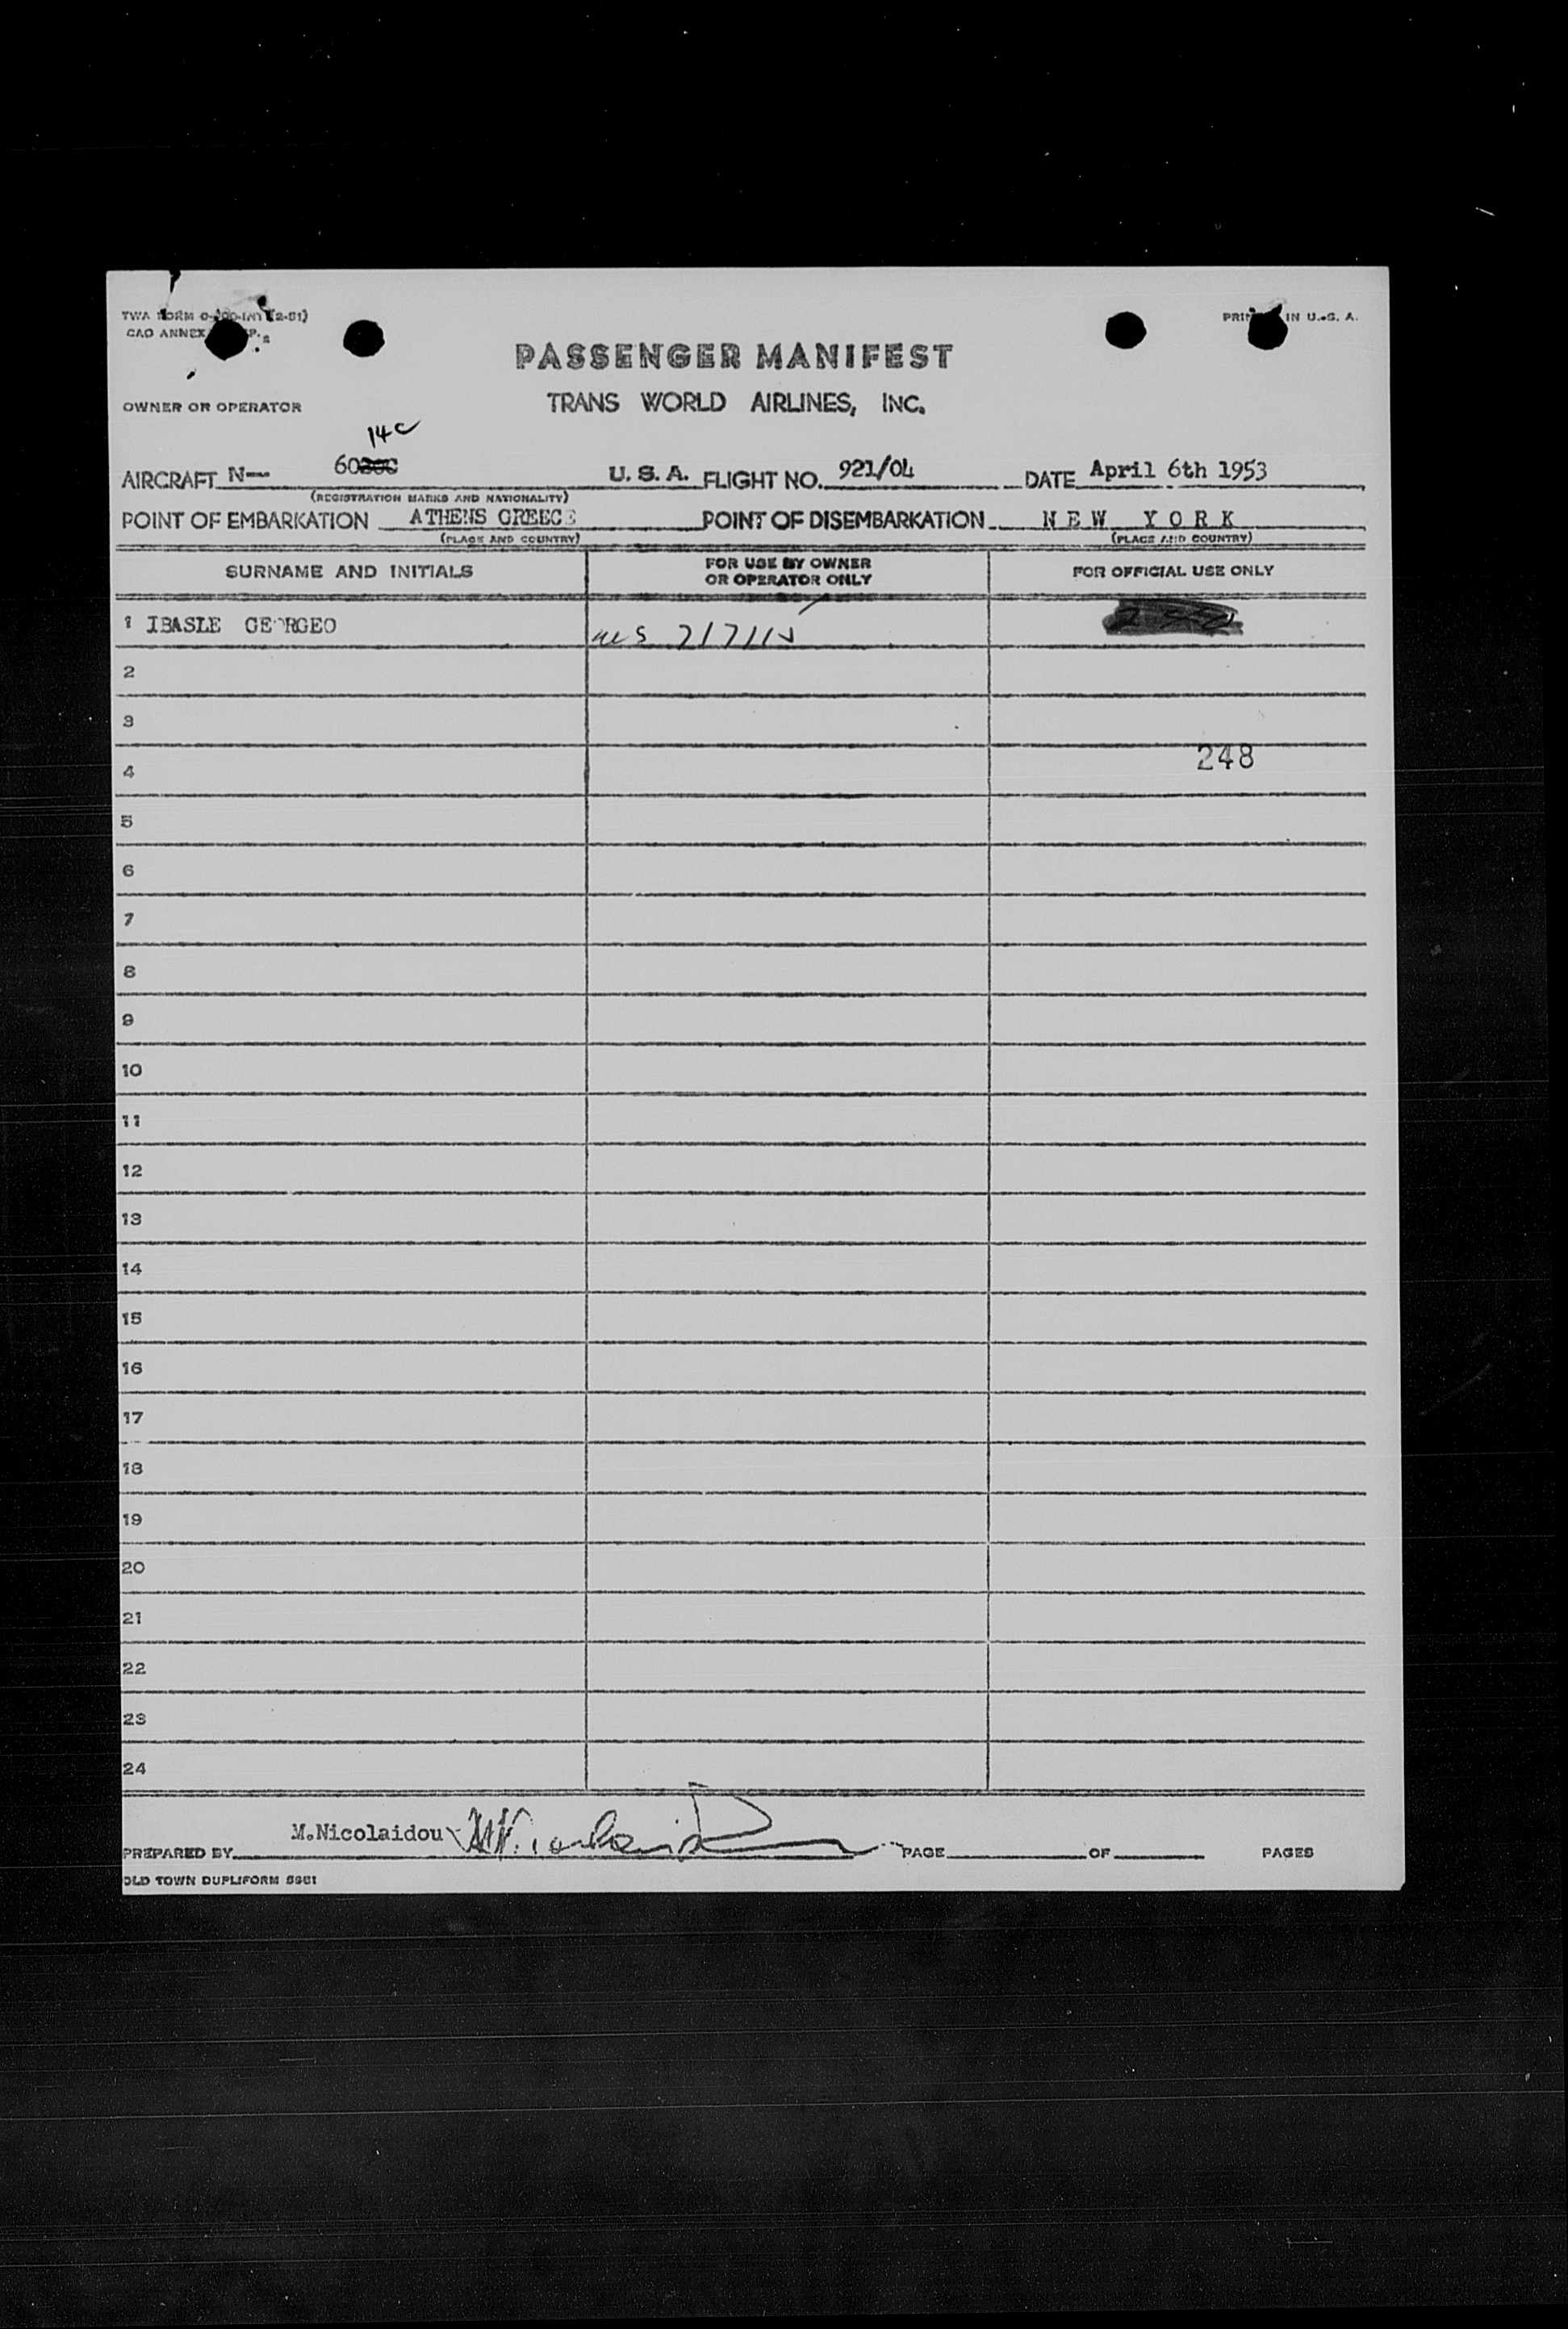 TWA FORM
CAO ANNEX
PRINTED IN U.S.A.
PASSENGER MANIFEST
OWNER OR OPERATOR TRANS WORLD AIRLINES, INC.
14C
AIRCRAFT N— 60 U.S.A. FLIGHT NO. 921/04 DATE April 6th 1953
(REGISTRATION MARKS AND NATIONALITY)
POINT OF EMBARKATION ATHENS GREECE POINT OF DISEMBARKATION NEW YORK
(PLACE AND COUNTRY) (PLACE AND COUNTRY)
SURNAME AND INITIALS FOR USE BY OWNER OR OPERATOR ONLY FOR OFFICIAL USE ONLY
1 IBASLE GEORGEO
2
3
4 248
5
6
7
8
9
10
11
12
13
14
15
16
17
18
19
20
21
22
23
24
PREPARED BY M.Nicolaidou PAGE OF PAGES
OLD TOWN DUPLIFORM